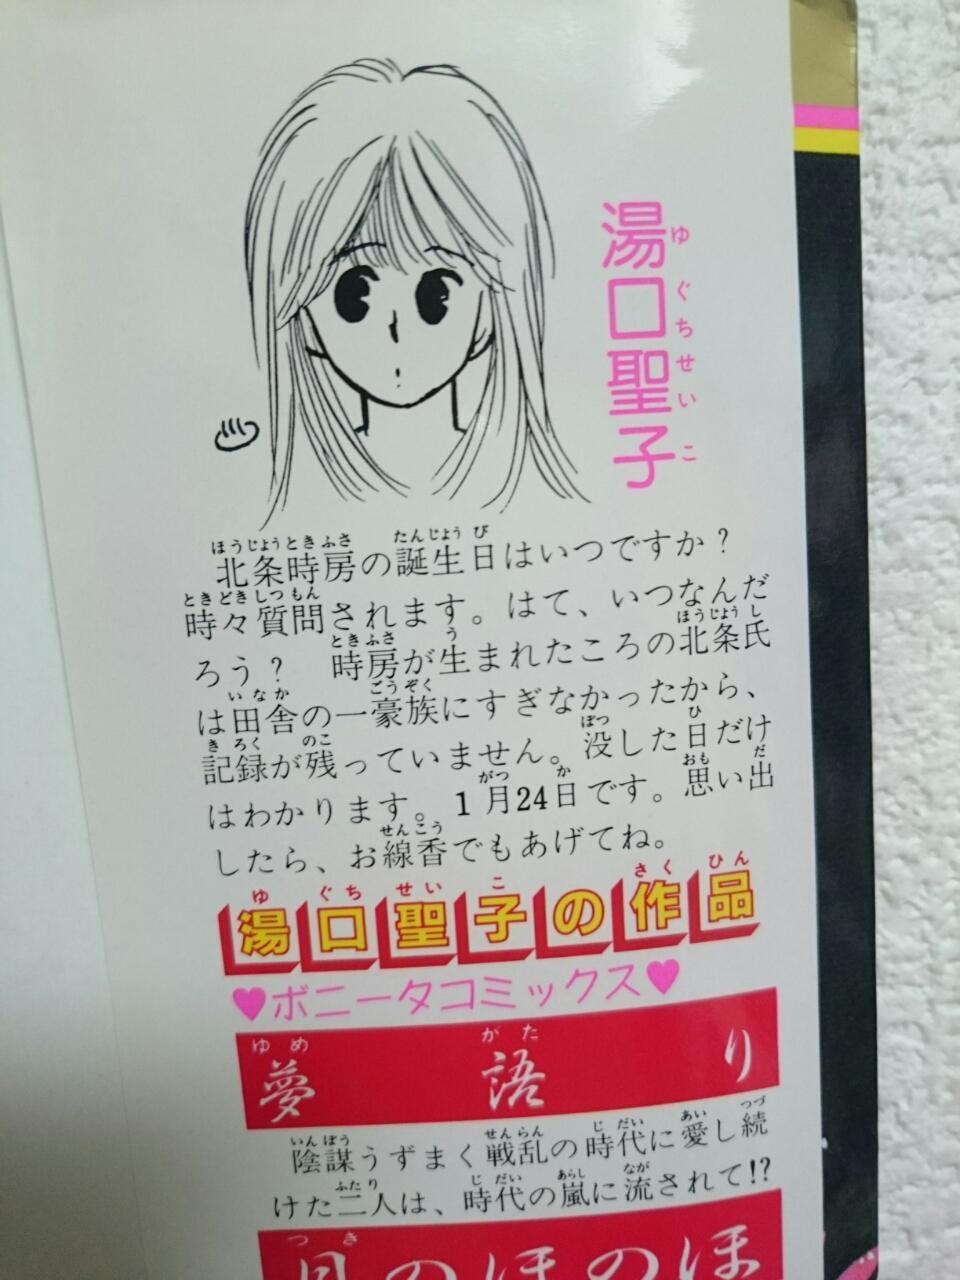 湯口聖子
ゆぐちせいこ
北条時房の誕生日はいつですか？
時々質問されます。はて、いつなんだ
ろう？　時房が生まれたころの北条氏
は田舎の一豪族にすぎなかったから、
記録が残っていません。没した日だけ
はわかります。1月24日です。思い出
したら、お線香でもあげてね。
湯口聖子の作品
♥ボニータコミックス♥
夢語り
陰謀うずまく戦乱の時代に愛し続
けた二人は、時代の嵐に流されて!?
月のほのほ